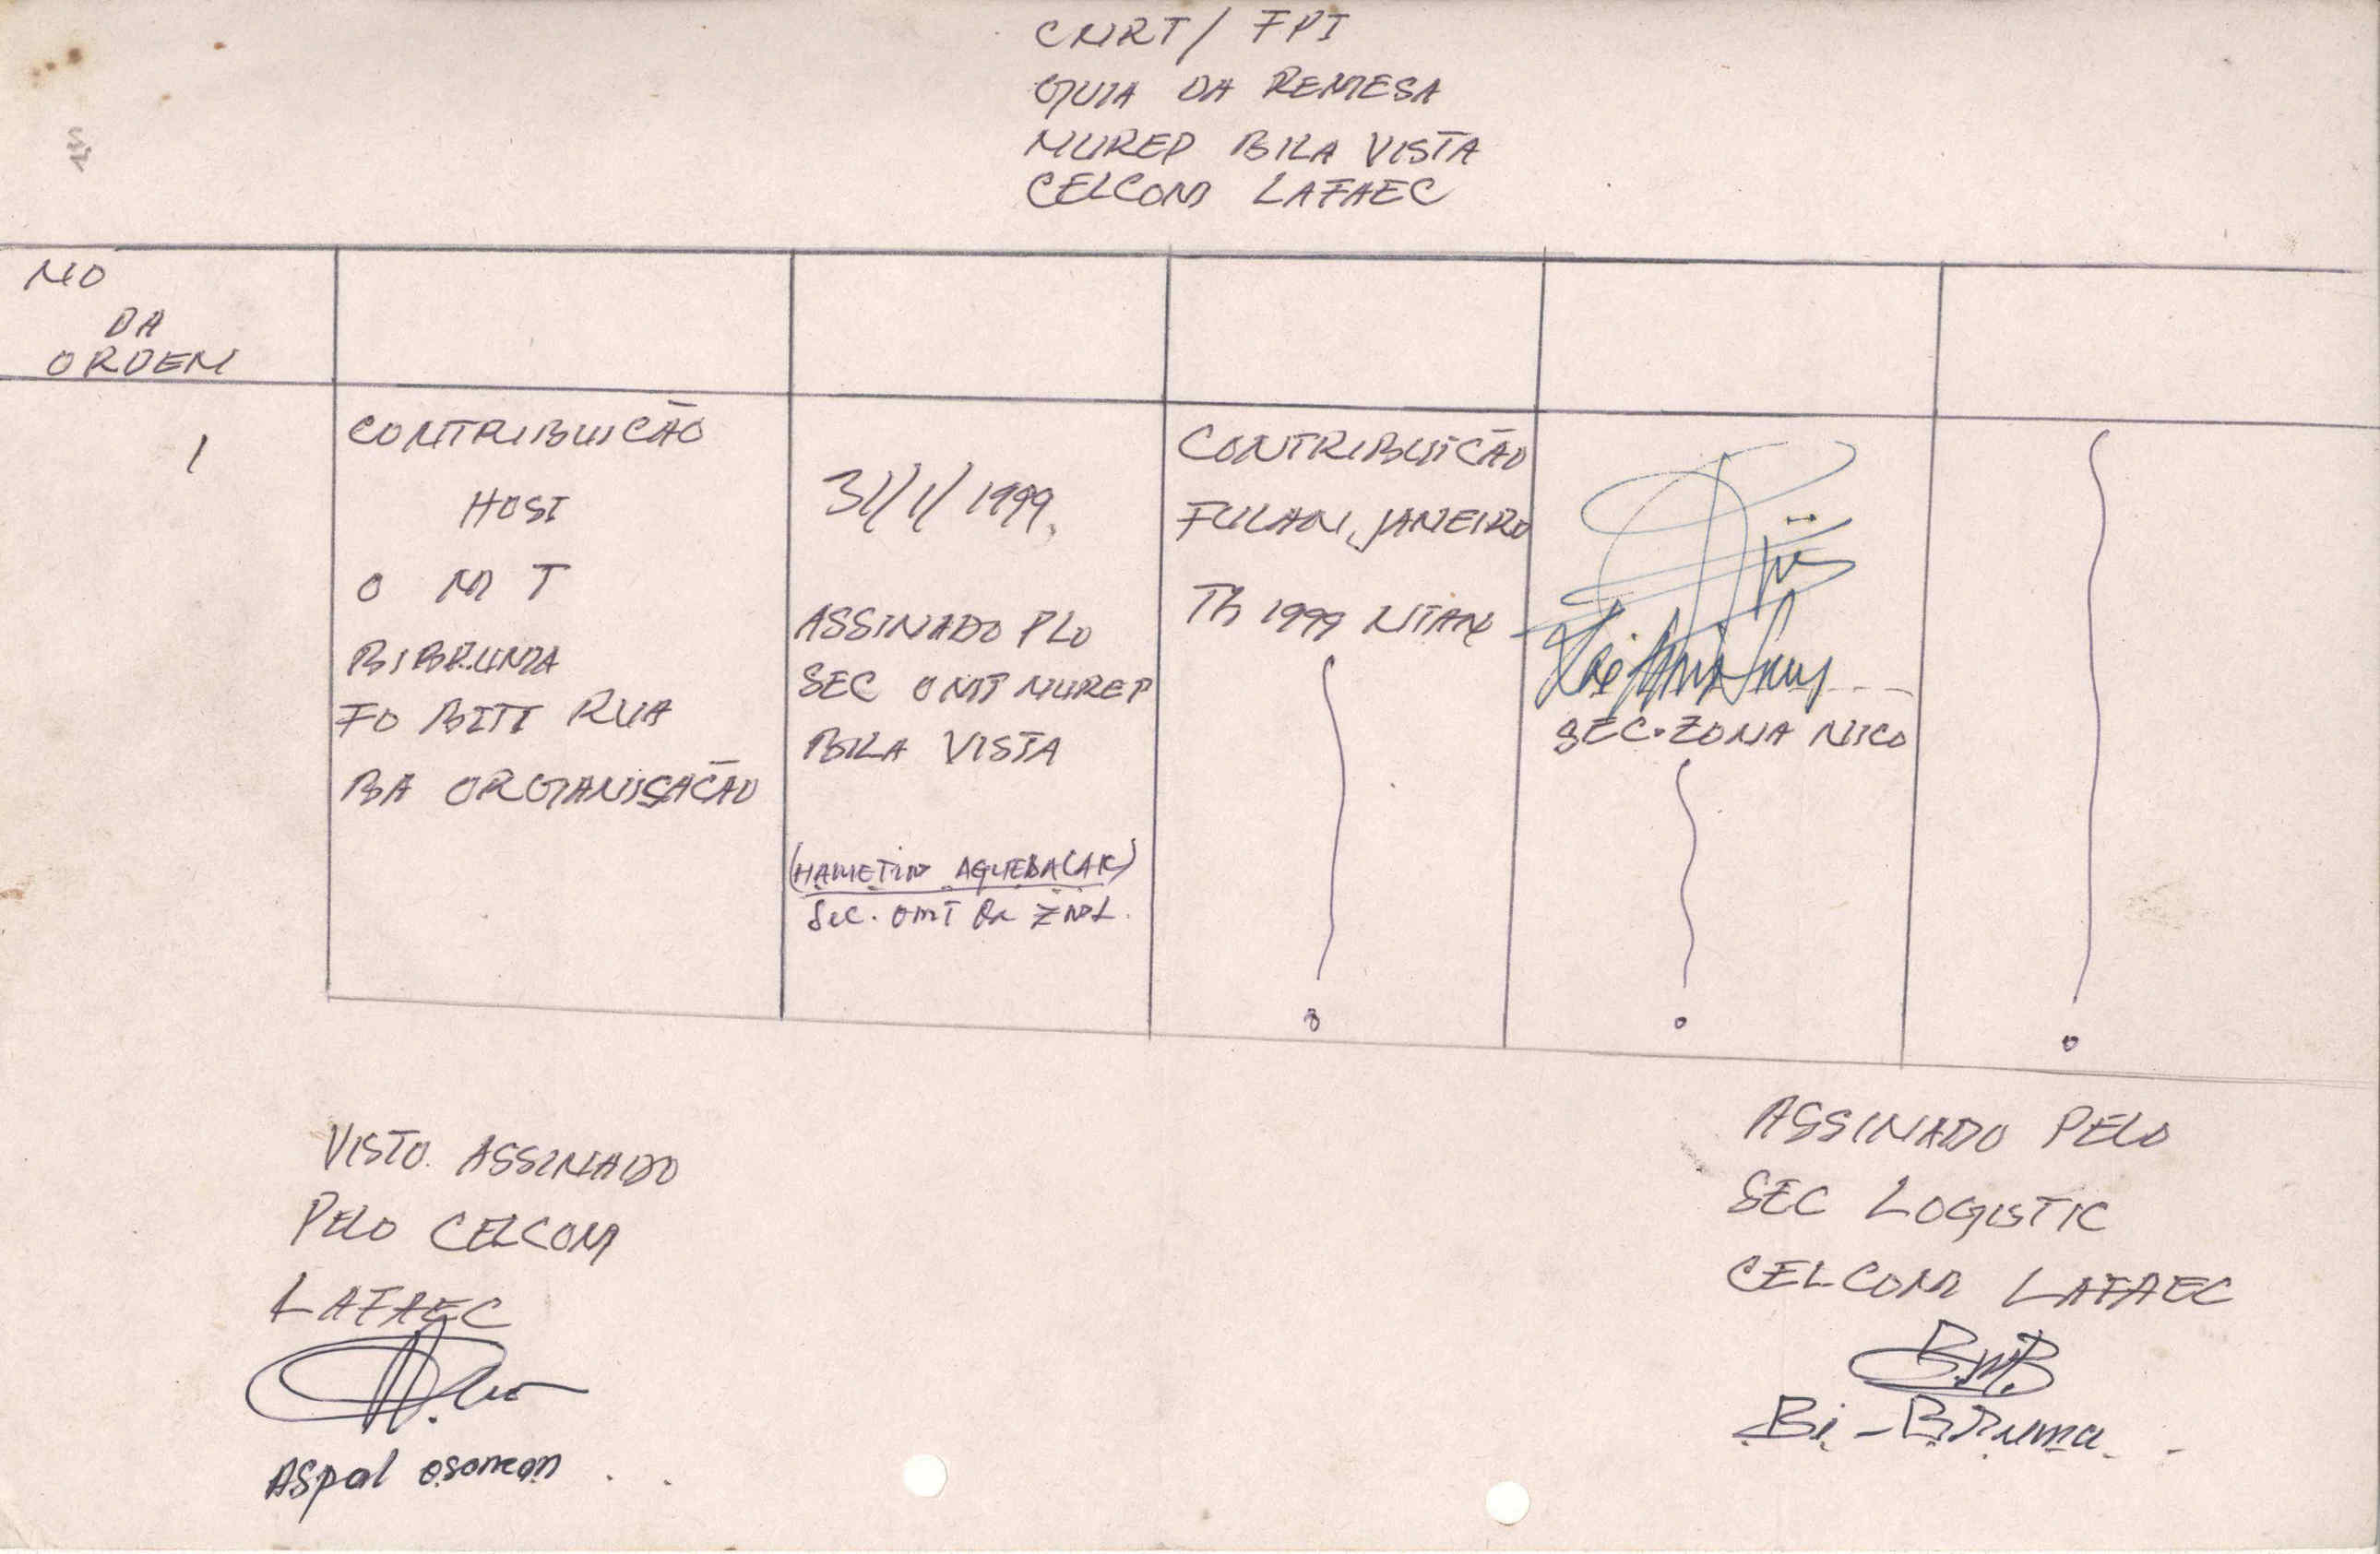 CNRT / FPI
GUIA DA REMESA
MUREP BILA VISTA
CELCOM LAFAEC
NO
DA
ORDEM
1
CONTRIBUICÃO
HOSI
O M T
BIBRUMA
FO BITI RUA
BA ORGANISACÃO
31/1/1999.
ASSINADO PLO
SEC OMT MUREP
BILA VISTA
(HAMETIN AQUEBACAR)
Sec. OMT
CONTRIBUICÃO
FULAN, JANEIRO
Tb 1999 NIAN
SEC. ZONA NICO
VISTO ASSINADO
PELO CELCOM
LAFAEC
ASpal osoncon
ASSINADO PELO
SEC LOGISTIC
CELCOM LAFAEC
B.M.B
Bi-Bruma